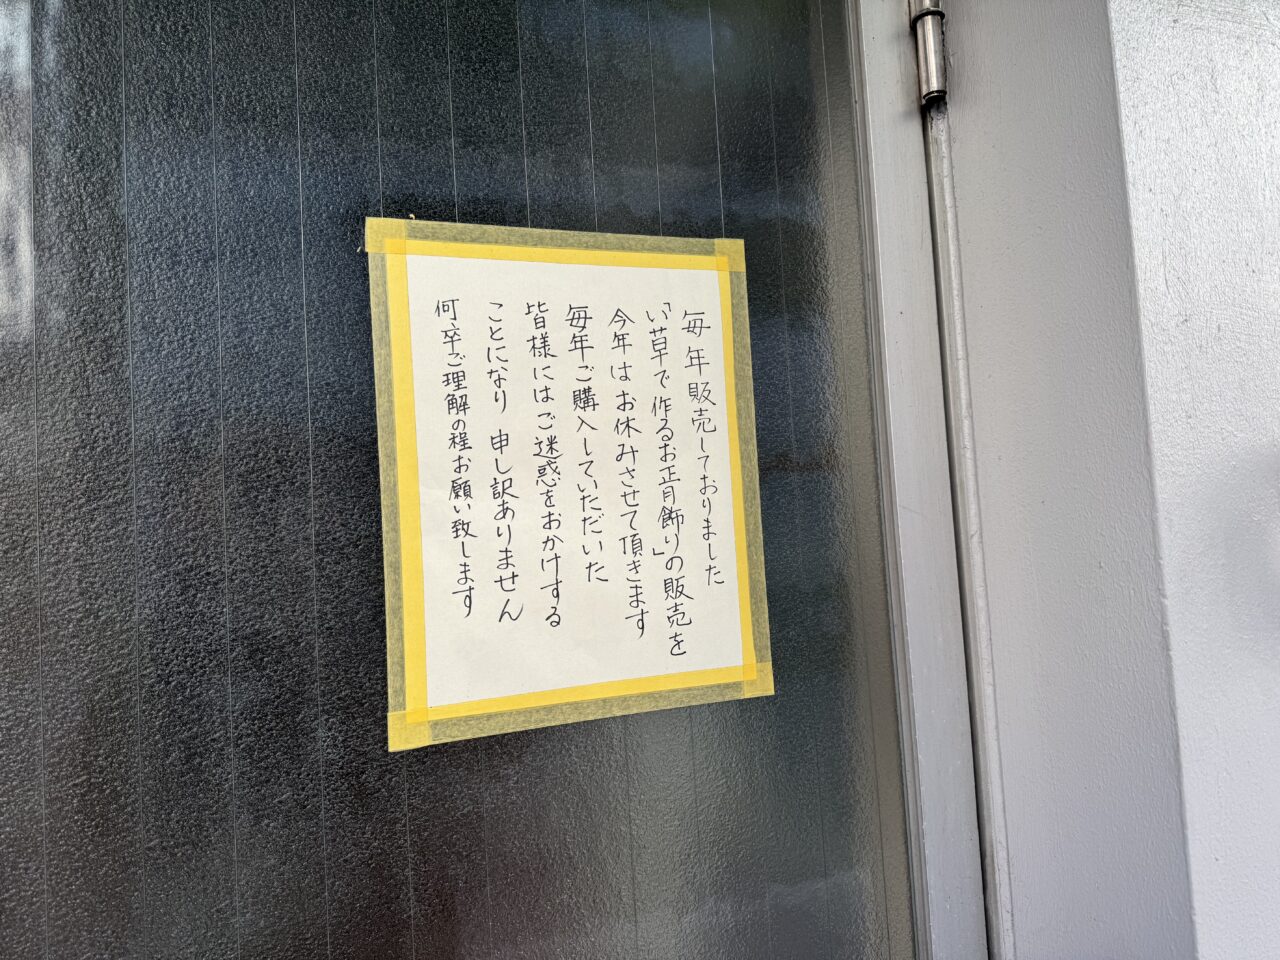 毎年販売しておりました
「い草で作るお正月飾り」の販売を
今年はお休みさせて頂きます
毎年ご購入していただいた
皆様にはご迷惑をおかけする
ことになり 申し訳ありません
何卒ご理解の程お願い致します